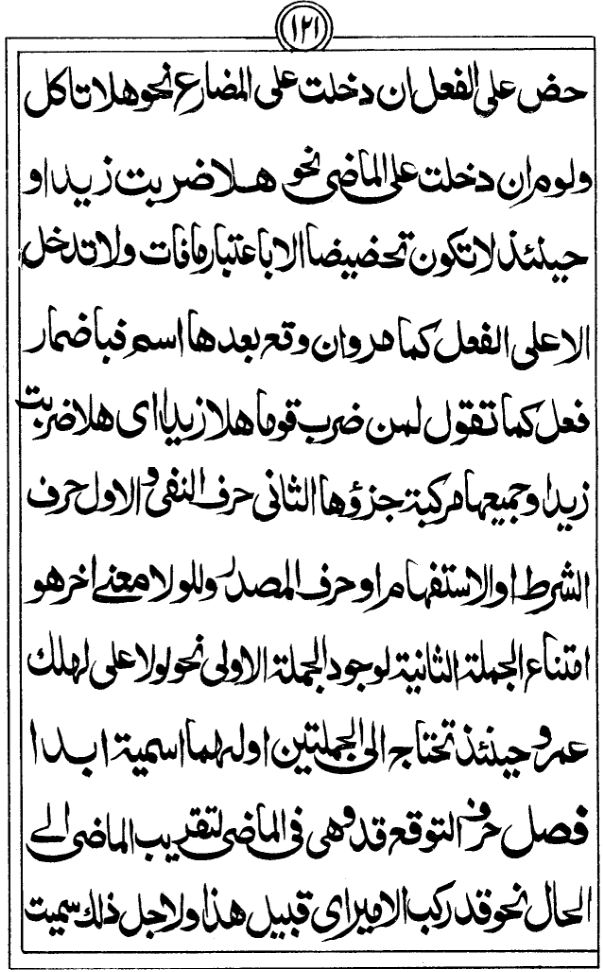 ١٢١
حض على الفعل ان دخلت على المضارع نحو هلا تاكل
ولوم ان دخلت على الماضى نحو هلا ضربت زيدا و
حينئذ لا تكون تحضيضا الا باعتبار مافات ولا تدخل
الا على الفعل كما مر وان وقع بعدها اسم فباضمار
فعل كما تقول لمن ضرب قوما هلا زيدا اى هلا ضربت
زيدا وجميعها مركبة جزؤها الثانى حرف النفى و الاول حرف
الشرط او الاستفهام او حرف المصدر وللولا معنے اخر هو
امتناع الجملة الثانية لوجود الجملة الاولى نحو لولا على لهلك
عمر و حينئذ تحتاج الى الجملتين اولهما اسمية ابدا
فصل حرف التوقع قد وهى فى الماضى لتقريب الماضى الے
الحال نحو قد ركب الامير اى قبيل هذا ولاجل ذلك سميت